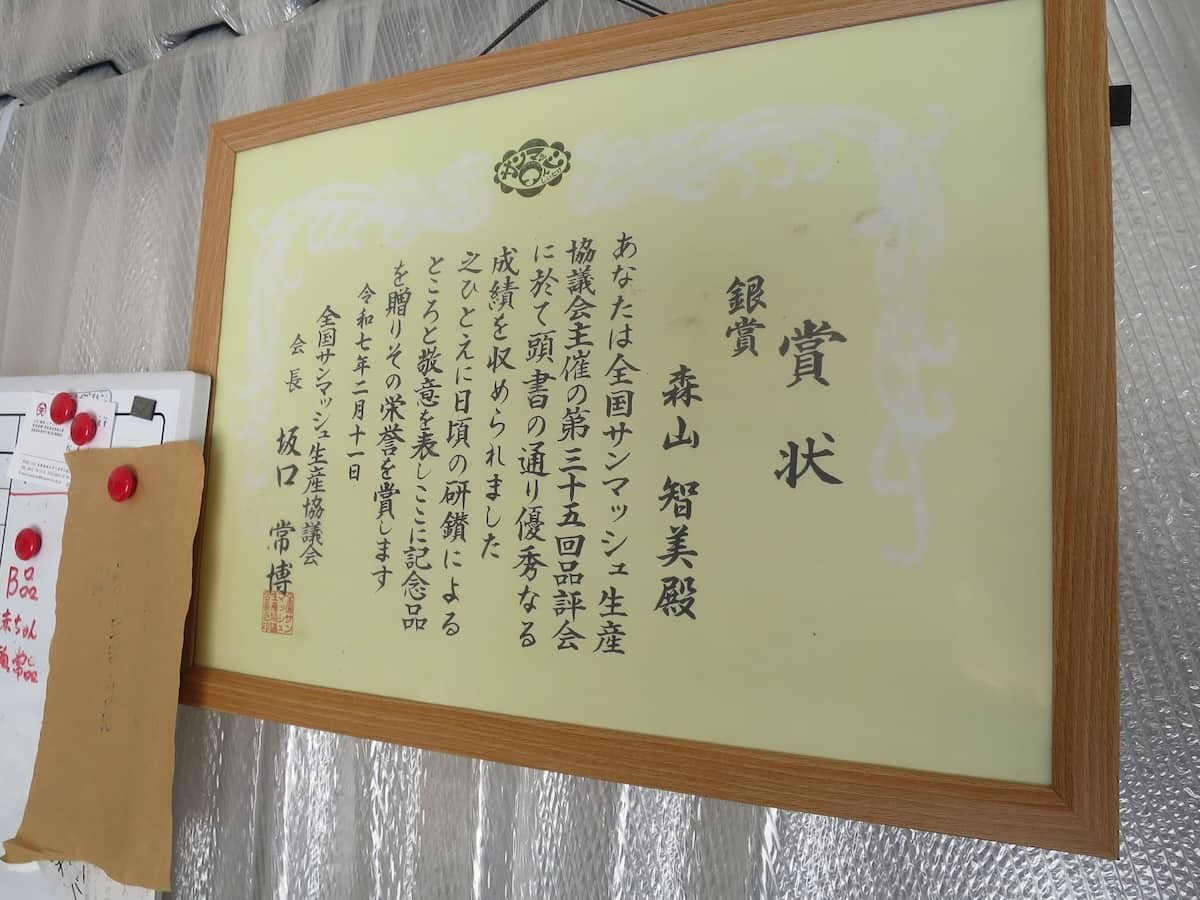 サンマッシュ
賞状
銀賞
森山智美殿
あなたは全国サンマッシュ生産
協議会主催の第三十五回品評会
に於て頭書の通り優秀なる
成績を収められました
之ひとえに日頃の研鑚による
ところと敬意を表しここに記念品
を贈りその栄誉を賞します
令和七年二月十一日
全国サンマッシュ生産協議会
会長 坂口 常博
B品
赤ちゃん